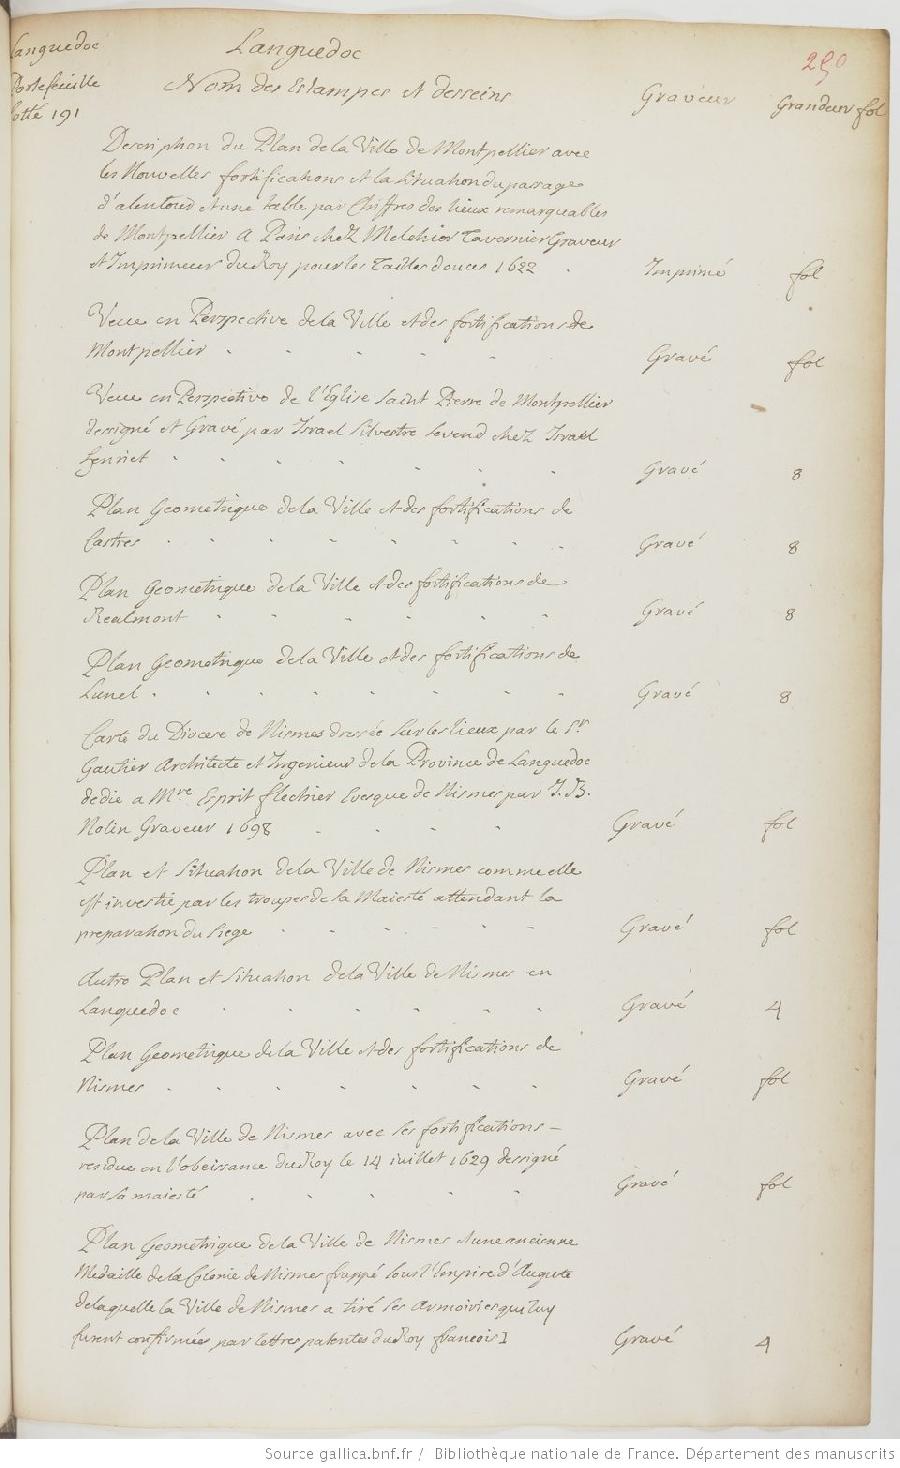 Languedoc
Portefeuille
cotté 191
Languedoc
250
Nom des Estampes et desseins
Graveur
Grandeur fol
Description du Plan de la Ville de Montpellier avec
les Nouvelles fortifications et la situation du paisage
d'alentour et une table par Chiffres des lieux remarquables
de Montpellier A Paris chez Melchior Tavernier Graveur
et Imprimeur du Roy pour les Tailles douces 1622 . Imprimé fol
Veue en Perspective de la Ville et des fortifications de
Montpellier . . . . . Gravé fol
Veue en Perspective de l'Eglise Saint Pierre de Montpellier
dessigné et Gravé par Israel Silvestre se vend chez Israel
henriet . . . . . . . Gravé 8
Plan Geometrique de la Ville et des fortifications de
Castres . . . . . . . Gravé 8
Plan Geometrique de la Ville et des fortifications de
Realmont . . . . . . Gravé 8
Plan Geometrique de la Ville et des fortifications de
Lunel . . . . . . . . Gravé 8
Carte du Diocese de Nismes dressée sur les lieux par le Sr
Gautier Architecte et Ingenieur de la Province de Languedoc
dedie a Mre Esprit flechier Evesque de Nismes par J. B.
Nolin Graveur 1698 . . . . Gravé fol
Plan et Situation de la Ville de Nismes comme elle
est investie par les troupes de la Maiesté attendant la
preparation du siege . . . . . Gravé fol
Autre Plan et situation de la Ville de Nismes en
Languedoc . . . . . . Gravé 4
Plan Geometrique de la Ville et des fortifications de
Nismes . . . . . . . Gravé fol
Plan de la Ville de Nismes avec ses fortifications –
residue en l'obeissance du Roy le 14 iuillet 1629 dessigné
par sa maiesté . . . . . Gravé fol
Plan Geometrique de la Ville de Nismes et une ancienne
Medaille de la Colonie de Nismes frappé sous l'Empire d'Auguste
de laquelle la Ville de Nismes a tiré ses armoiries qui luy
furent confirmées par lettres patentes du Roy francois I Gravé 4
Source gallica.bnf.fr / Bibliothèque nationale de France. Département des manuscrits